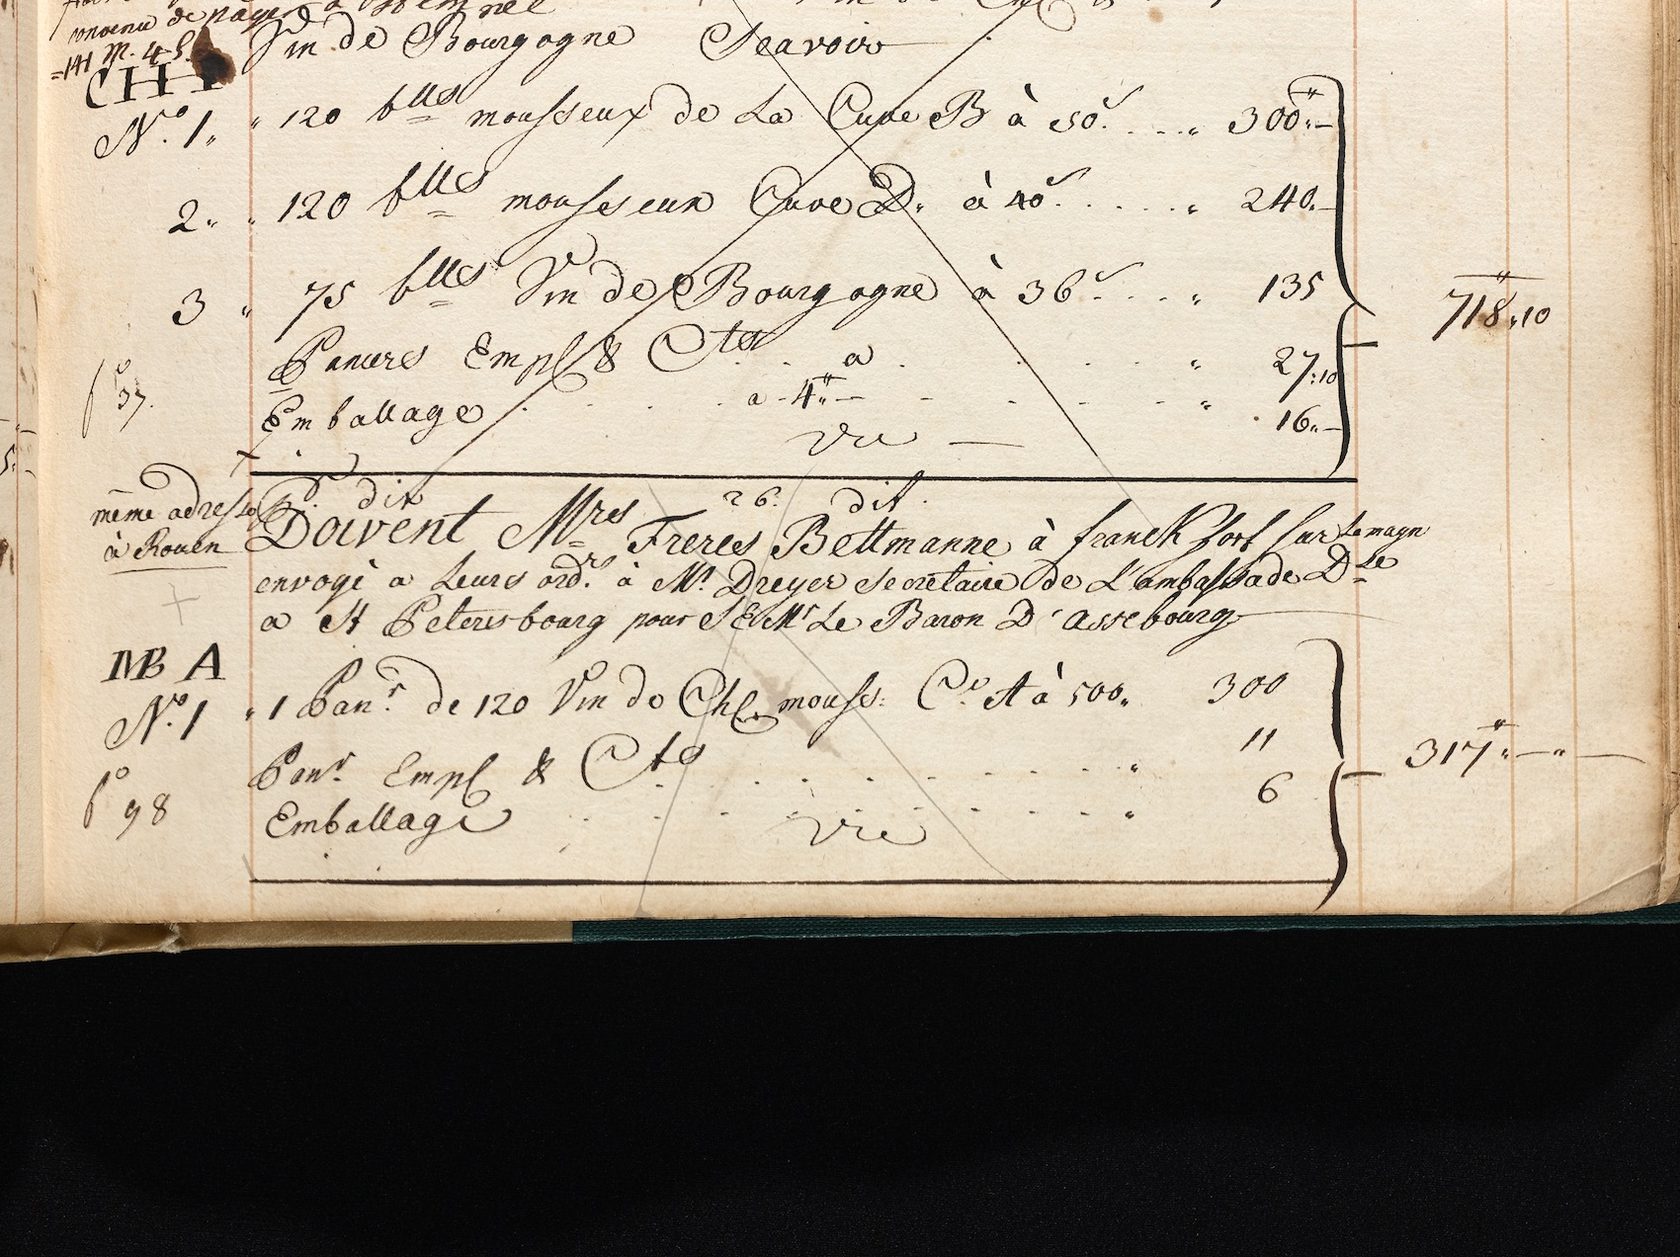 convenu de payer
=141 M. 4 S.
Vin de Bourgogne Scavoir
CHH
N.º 1„ „ 120 blles mousseux de La Cuve B à 50.s „ 300„—
2„ „ 120 blles mousseux Cuve D„ à 40.s „ 240„—
3 „ 75 blles Vin de Bourgogne à 36.s „ 135
718„10
Paniers Empl & Ctes a „ 27„10
fº 37.
Emballage a - 4„— „ 16„—
vu
dit 26. dit.
même adresse
à Rouen
Doivent Mrs Freres Bettmanne à franckfort sur Le mayn
envoyé a Leurs ord.rs à Mr. Dreyer secretaire de L'ambassade Dle
a St Petersbourg pour S E Mr Le Baron D'assebourg
MB A
N.º 1 „ 1 Pan.r de 120 Vin de Chp mouss: C.e A à 50s. 300
Pan.r Empl & Ctes „ 11
317„—„—
fº 98
Emballage „ 6
vu